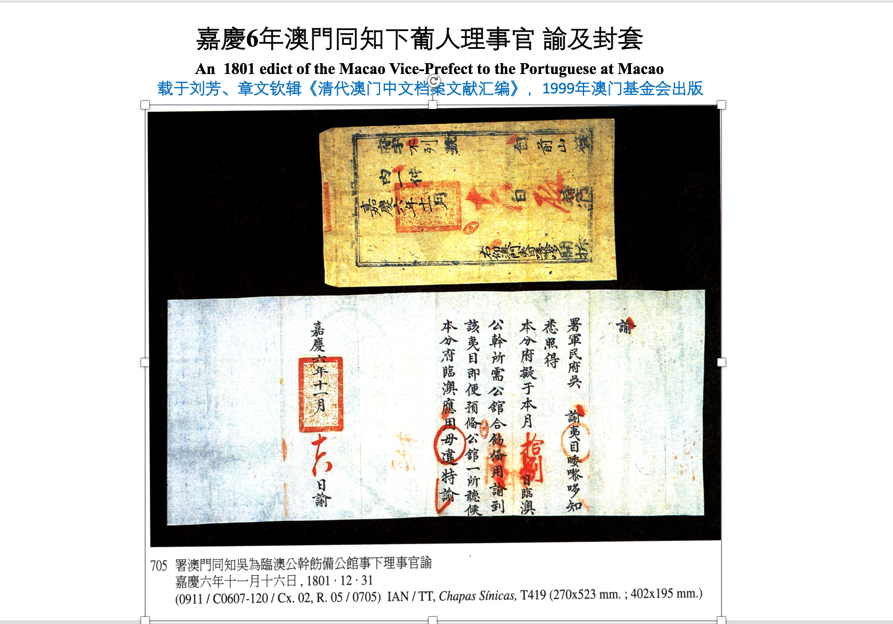 嘉慶6年澳門同知下葡人理事官 諭及封套
An 1801 edict of the Macao Vice-Prefect to the Portuguese at Macao
载于刘芳、章文钦辑《清代澳门中文档案文献汇编》，1999年澳门基金会出版
內一件
嘉慶六年十一月
諭
署軍民府吳 諭夷目唩嚟哆知
悉照得
本分府擬于本月拾捌日臨澳
公幹所需公館合飭俻用諭到
該夷目即便預俻公館一所聽候
本分府臨澳應用毋違特諭
嘉慶六年十一月十六日諭
705 署澳門同知吳為臨澳公幹飭備公館事下理事官諭
嘉慶六年十一月十六日 , 1801 · 12 · 31
(0911 / C0607-120 / Cx. 02, R. 05 / 0705) IAN / TT, Chapas Sínicas, T419 (270x523 mm. ; 402x195 mm.)